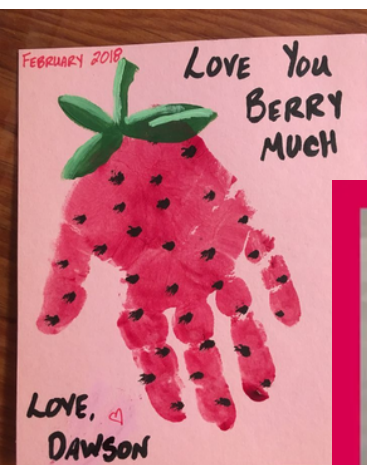 FEBRUARY 2018
LOVE YOU
BERRY
MUCH
LOVE,
DAWSON